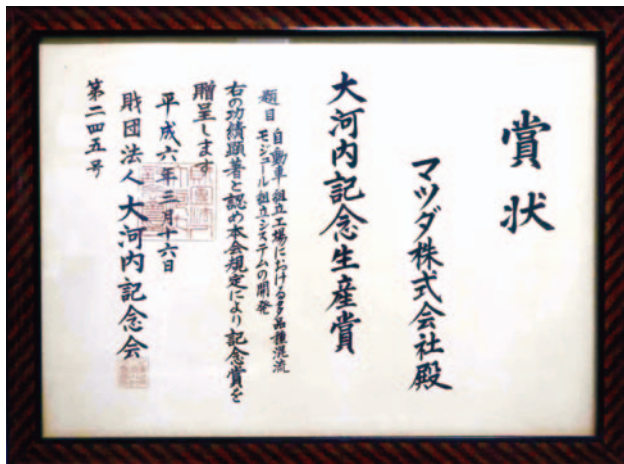 賞状
マツダ株式会社殿
大河内記念生産賞
題目 自動車組立工場における多品種混流
モジュール組立システムの開発
右の功績顕著と認め本会規定により記念賞を
贈呈します
平成六年三月十六日
財団法人 大河内記念会
第二四五号